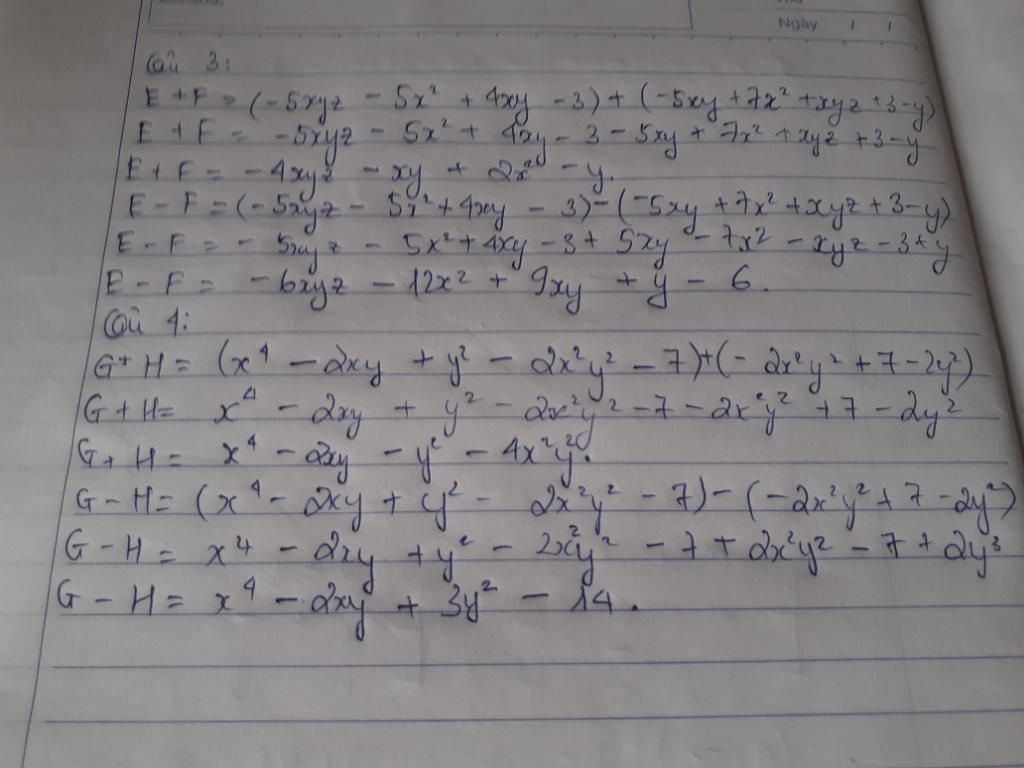 Ngày / /
Câu 3:
E + F = (-5xyz - 5x² + 4xy - 3) + (-5xy + 7x² + xyz + 3 - y)
E + F = -5xyz - 5x² + 4xy - 3 - 5xy + 7x² + xyz + 3 - y
E + F = -4xyz - xy + 2x² - y.
E - F = (-5xyz - 5x² + 4xy - 3) - (-5xy + 7x² + xyz + 3 - y)
E - F = -5xyz - 5x² + 4xy - 3 + 5xy - 7x² - xyz - 3 + y
E - F = -6xyz - 12x² + 9xy + y - 6.
Câu 4:
G + H = (x⁴ - 2xy + y² - 2x²y² - 7) + (-2x²y² + 7 - 2y²)
G + H = x⁴ - 2xy + y² - 2x²y² - 7 - 2x²y² + 7 - 2y²
G + H = x⁴ - 2xy - y² - 4x²y².
G - H = (x⁴ - 2xy + y² - 2x²y² - 7) - (-2x²y² + 7 - 2y²)
G - H = x⁴ - 2xy + y² - 2x²y² - 7 + 2x²y² - 7 + 2y³
G - H = x⁴ - 2xy + 3y² - 14.